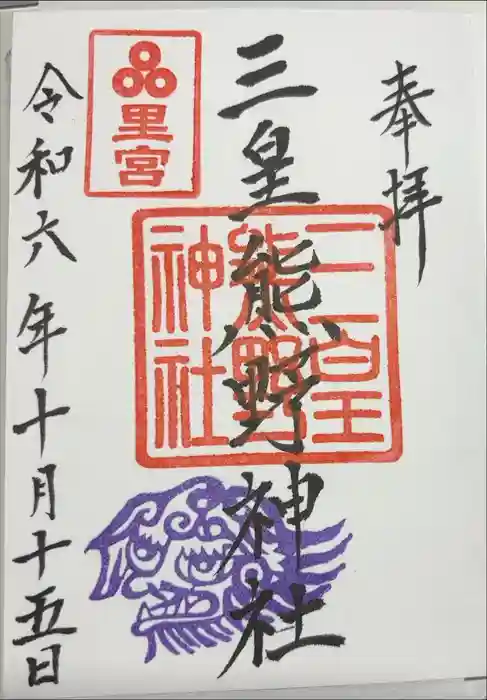 奉拝
三皇熊野神社
三皇
熊野
神社
里宮
令和六年十月十五日